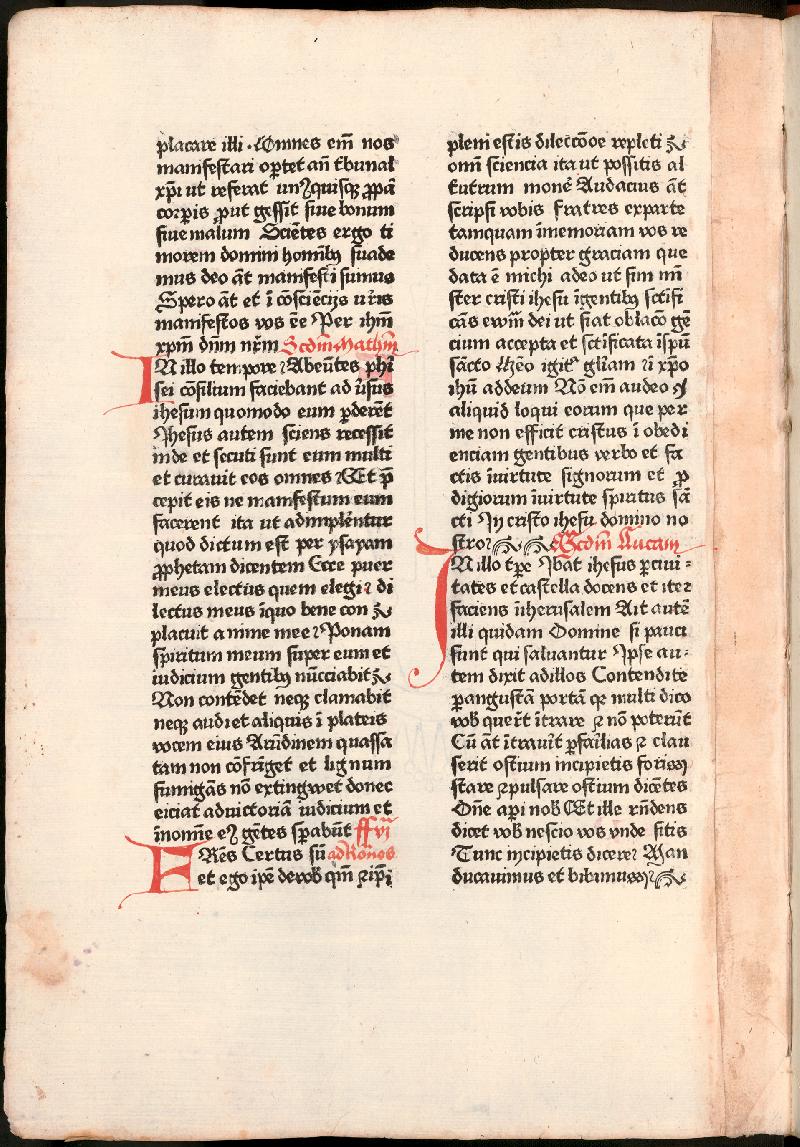 placare illi · Omnes em̄ nos
manifestari optet an̄ tbunal
xp̄i ut referat unꝰquisqꝫ ꝓpͣ
corꝑis ꝓut gessit siue bonum
siue malum Sciētes ergo ti
morem domini homībꝫ suade
mus deo āt manifesti sumus
Spero āt et ī cōsciēcijs uris
manifestos vos ēe Per ihm̄
xp̄m dn̄m nr̄m Scd̄m Mathm̄
IN illo tempore Abeūtes phi
sei cōsilium faciebant ad ūsus
ihesum quomodo eum ꝑderēt
Jhesus autem sciens recessit
inde et secuti sunt eum multi
et curauit eos omnes Et p̄
cepit eis ne manifestum eum
facerent ita ut adimplēntur
quod dictum est per ysayam
ꝓphetam dicentem Ecce puer
meus electus quem elegi di
lectus meus īquo bene con
placuit anime mee Ponam
spiritum meum super eum et
iudicium gentibꝫ nūcciabit
Non contēdet neqꝫ clamabit
neqꝫ audiet aliquis ī plateis
vocem eius Arūdinem quassa
tam non cōfrīget et lignum
fumigās nō extingwet donec
eiciat aduictoriā iudicium et
inomīe eꝰ gētes sꝑabūt ff vi
FRēs Certus sū ad Rōnos
et ego ipē de vob qm̄ ⁊ ip̄i
pleni estis dileccōe repleti
omī sciencia ita ut possitis al
tutrum monē Audacius āt
scripsi vobis fratres exparte
tamquam īmemoriam vos re
ducens propter graciam que
data ē michi adeo ut sim mī
ster cristi ihesū īgentibꝫ sctifi
cās ewm̄ dei ut fiat oblacō gē
cium accepta et sctificata īspū
sācto Hēo igit gliam ī xp̄o
ihū addeum Nō em̄ audeo
aliquid loqui eorum que per
me non efficit cristus ī obedi
enciam gentibus verbo et fa
ctis īuirtute signorum et ꝓ
digiorum īuirtute spiritus sā
cti Jn cristo ihesu domino no
stro Scdm̄ Lucam
IN illo tp̄e Jbat ihesus ꝑ ciui=
tates et castella docens et iter
faciens īiherusalem Ait autē
illi quidam Domine si pauci
sunt qui saluantur Ipse au=
tem dixit adillos Contendite
ꝑangustā portā qꝫ multi dico
vob querīt ītrare ⁊ nō poterūt
Cū āt ītrauīt ꝑfaīlias ⁊ clau
serit ostium incipietis foris
stare ⁊pulsare ostium dicētes
Dn̄e apī nob Et ille rn̄dens
dicet vob nescio vos vnde sitis
Tunc incipietis dicere Man
ducauimus et bibimus